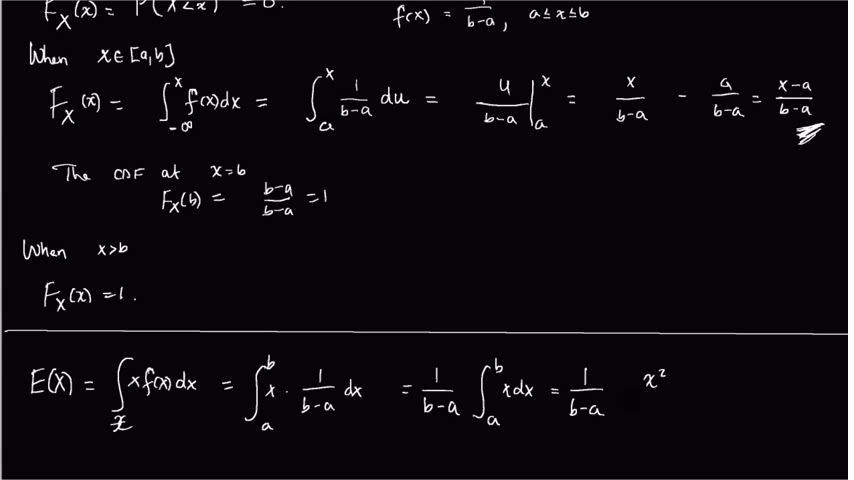 F_X(x) = P(X<x) = 0.
f(x) = 1/(b-a), a≤x≤b
When x∈[a,b]
F_X(x) = ∫_{-∞}^{x} f(x)dx = ∫_{a}^{x} 1/(b-a) du = u/(b-a) |_{a}^{x} = x/(b-a) - a/(b-a) = (x-a)/(b-a)
The CDF at x=b
F_X(b) = (b-a)/(b-a) = 1
When x>b
F_X(x) = 1.
E(X) = ∫_{x} x f(x) dx = ∫_{a}^{b} x · 1/(b-a) dx = 1/(b-a) ∫_{a}^{b} x dx = 1/(b-a) x²